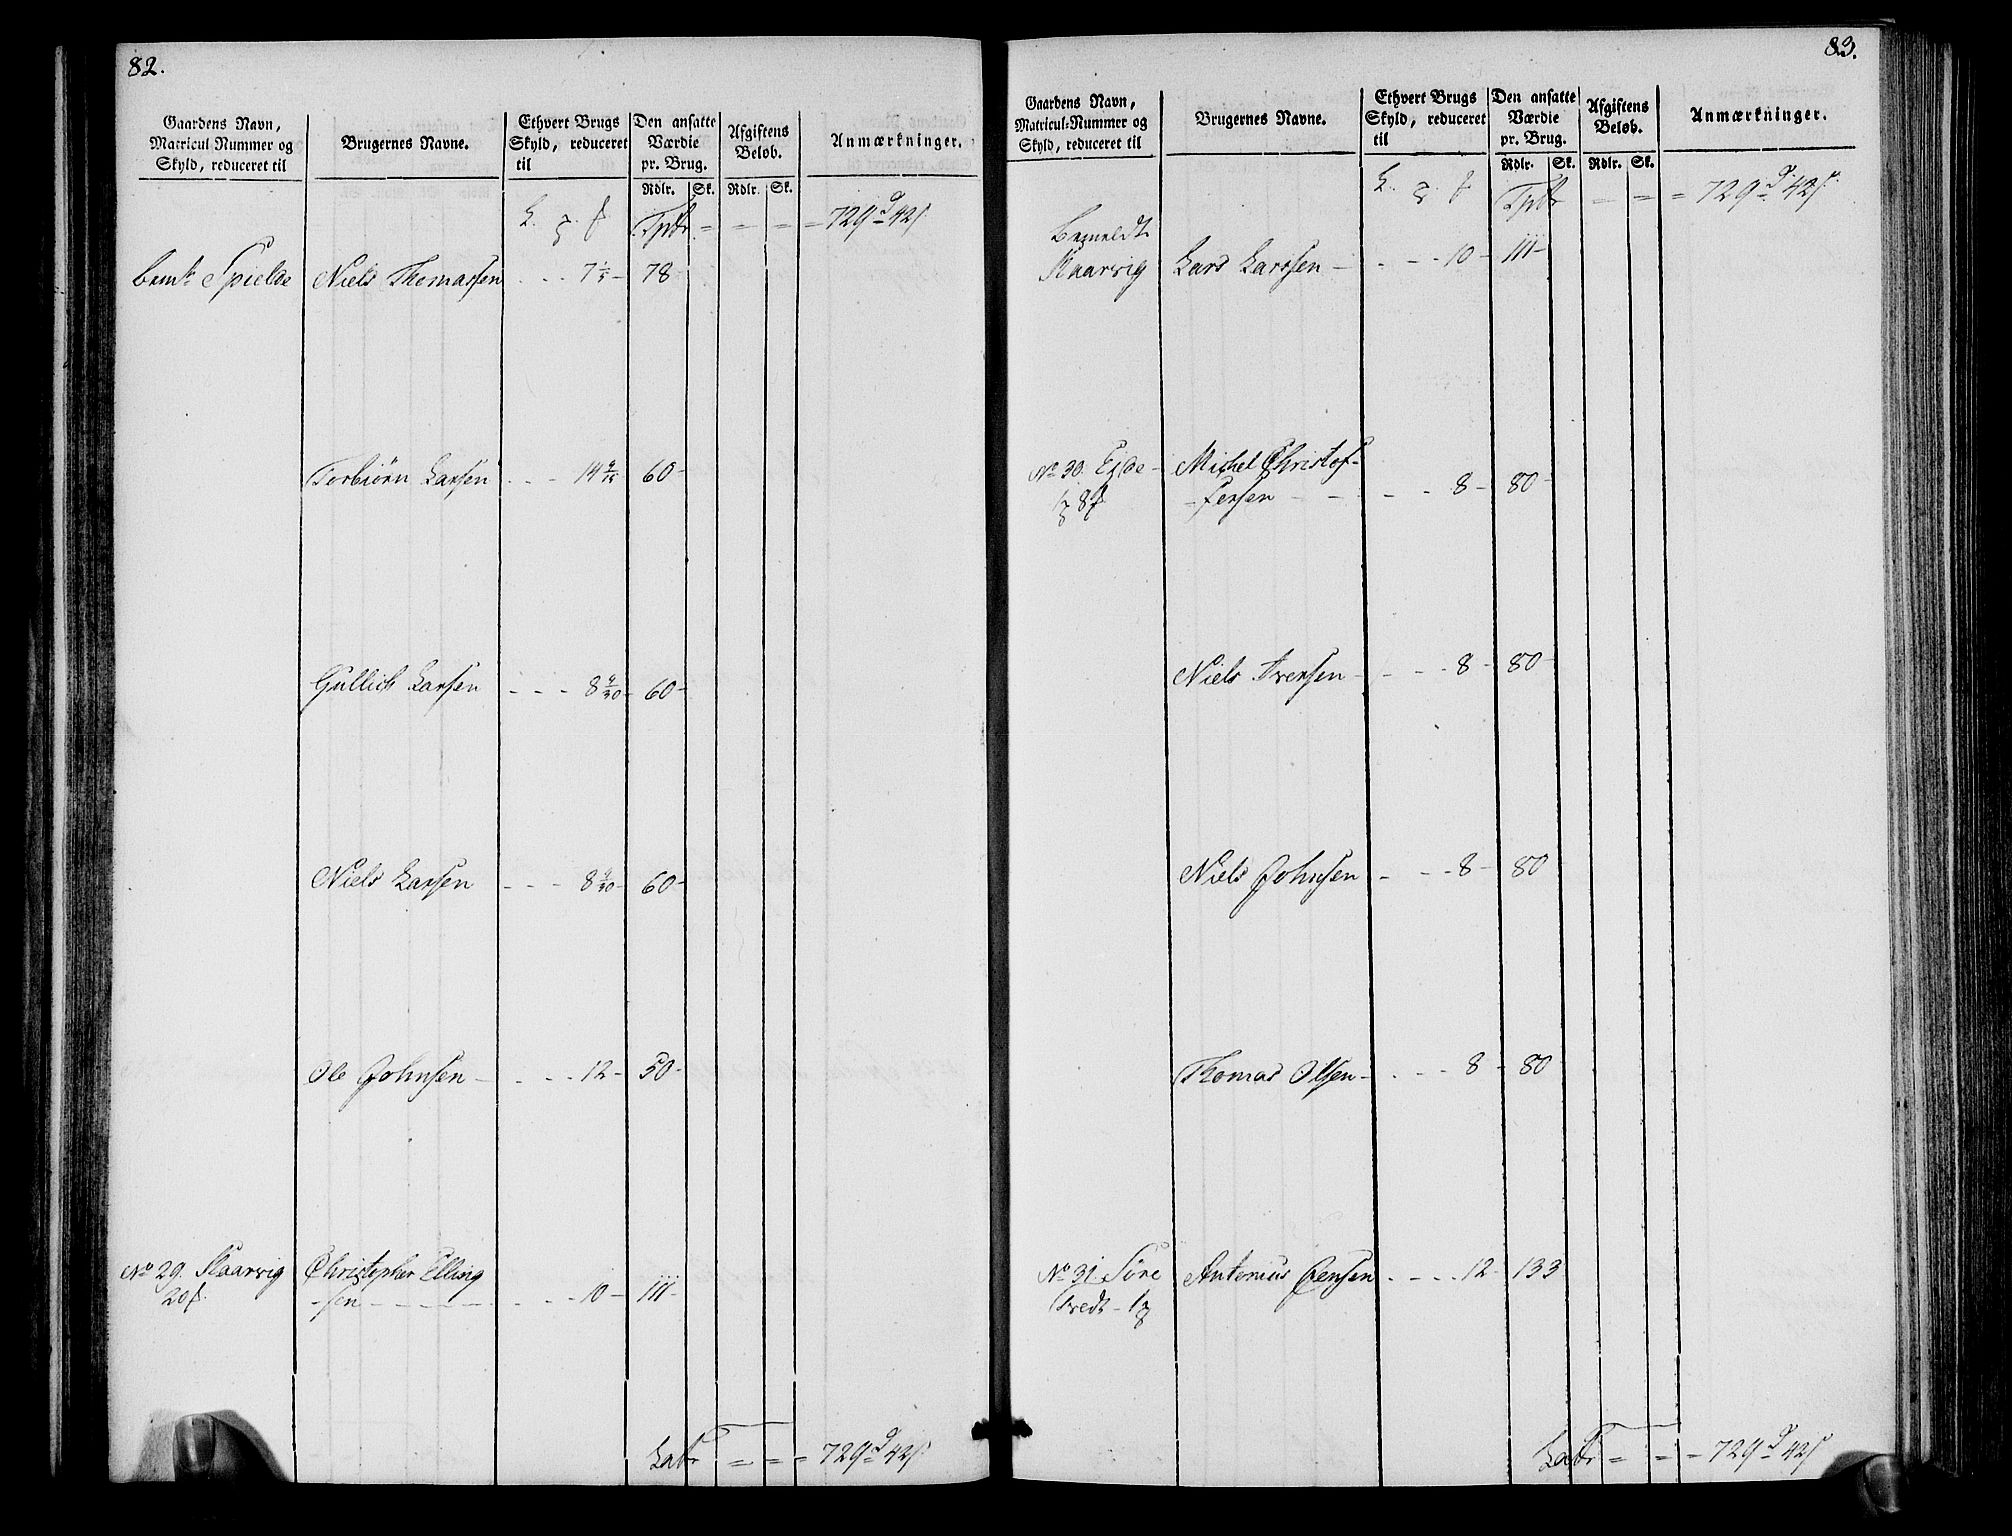 82.
Gaardens Navn, Matricul-Nummer og Skyld, reduceret til
Brugernes Navne.
Ethvert Brugs Skyld, reduceret til
Den ansatte Værdie pr. Brug.
Afgiftens Beløb.
Anmærkninger.
Rdlr. Sk. Rdlr. Sk.
Tpbr = = = = 729 d 42 s.
bem.te Spielde Niels Thomassen - - - 7 1/5 - 78
Torbiörn Larsen - - - 14 4/15 60 -
Gullich Larsen - - - 8 4/30 - 60 -
Niels Larsen - - - 8 4/30 - 60 -
Ole Johnsen - - - - 12 - 50 -
No 29. Skaarvig Christopher Elling
20 f. - sen - - - - - - - - 10 - 111 -
Latr = = = 729 d 42 s.
83.
Gaardens Navn, Matricul-Nummer og Skyld, reduceret til
Brugernes Navne.
Ethvert Brugs Skyld, reduceret til
Den ansatte Værdie pr. Brug.
Afgiftens Beløb.
Anmærkninger.
Rdlr. Sk. Rdlr. Sk.
Tpbr = = = 729 d 42 s.
Bemeldte
Skaarvig Lars Larssen - - - - 10 - 111 -
No 30. Eide - Michel Christof-
8 f - fersen - - - - - 8 - 80 -
Niels Iversen - - - - 8 - 80 -
Niels Johnsen - - - 8 - 80
Thomas Olsen - - - - 8 - 80
No 31. Söre Antonius Jensen - - - - 12 - 133
Tvedt -
Latr = = = 729 d 42 s